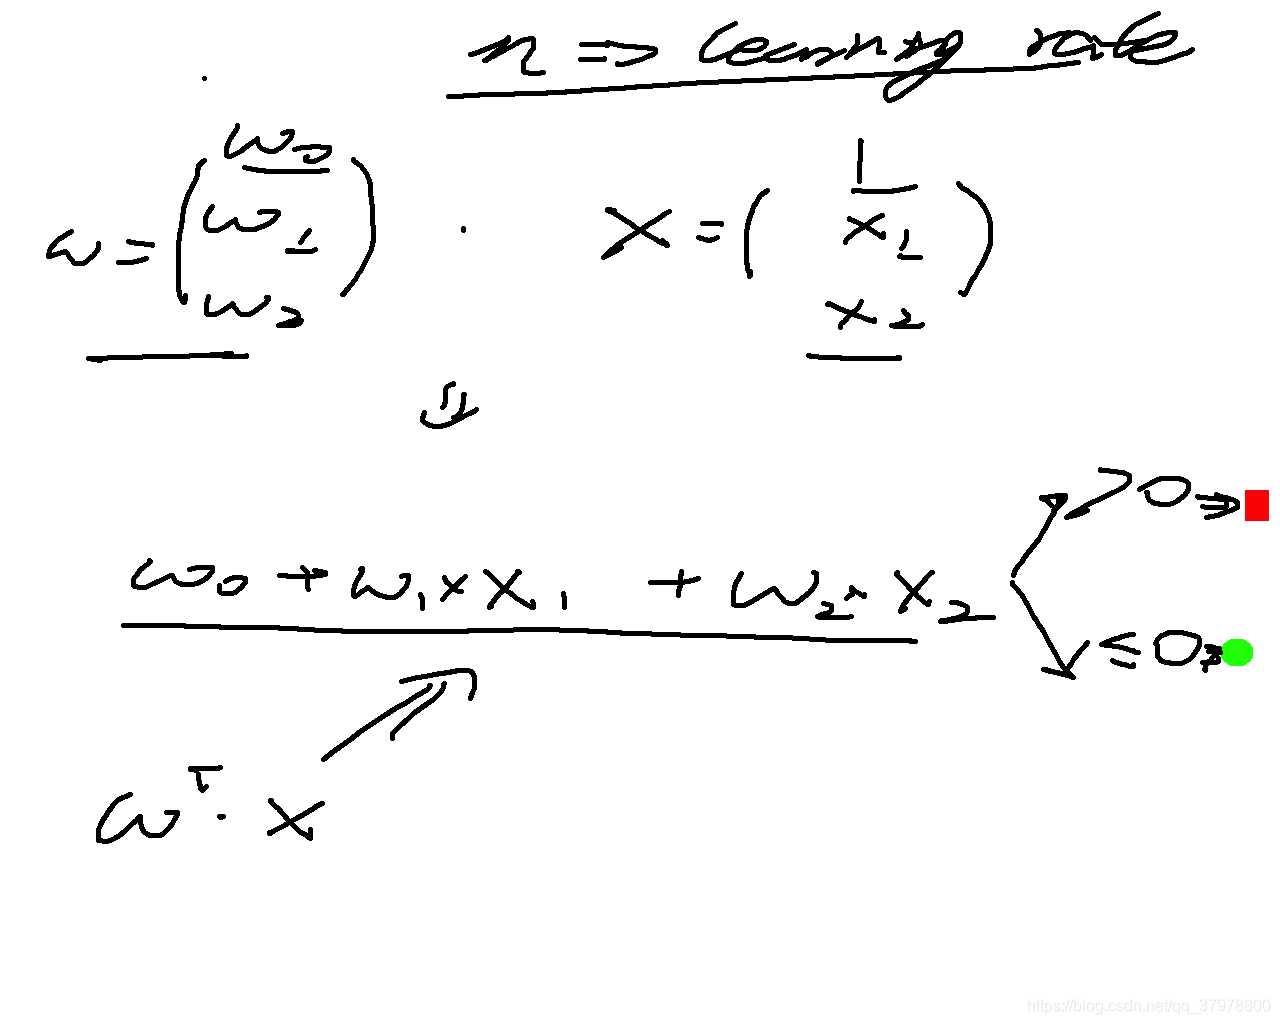 n => learning rate
w = (w0 w1 w2) . x = (1 x1 x2)
⇓
w0 + w1 × x1 + w2 × x2
> 0 ⇒
≤ 0 ⇒
w^T · x
https://blog.csdn.net/qq_37978800